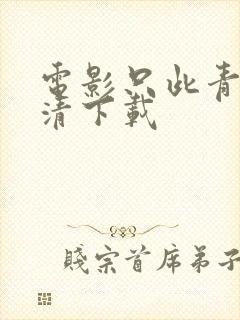 電影只此青
清下載
賤宗首席弟子